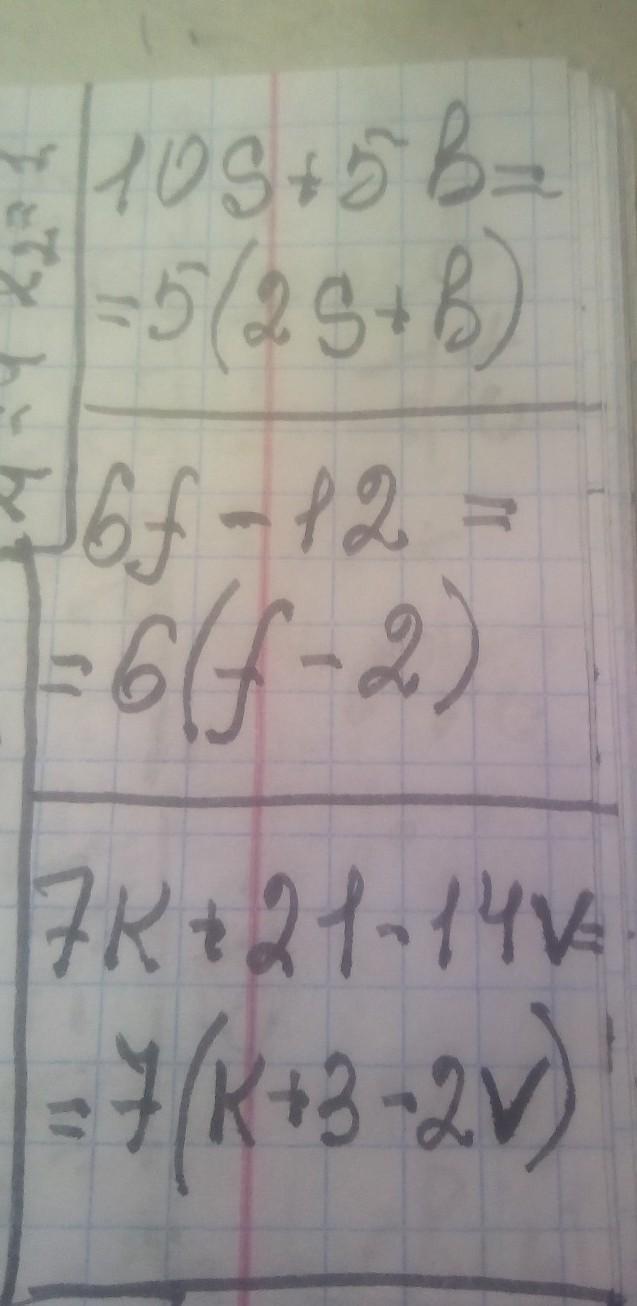 10S+5B=
=5(2S+B)
6f-12=
=6(f-2)
7K+21-14V=
=7(K+3-2V)